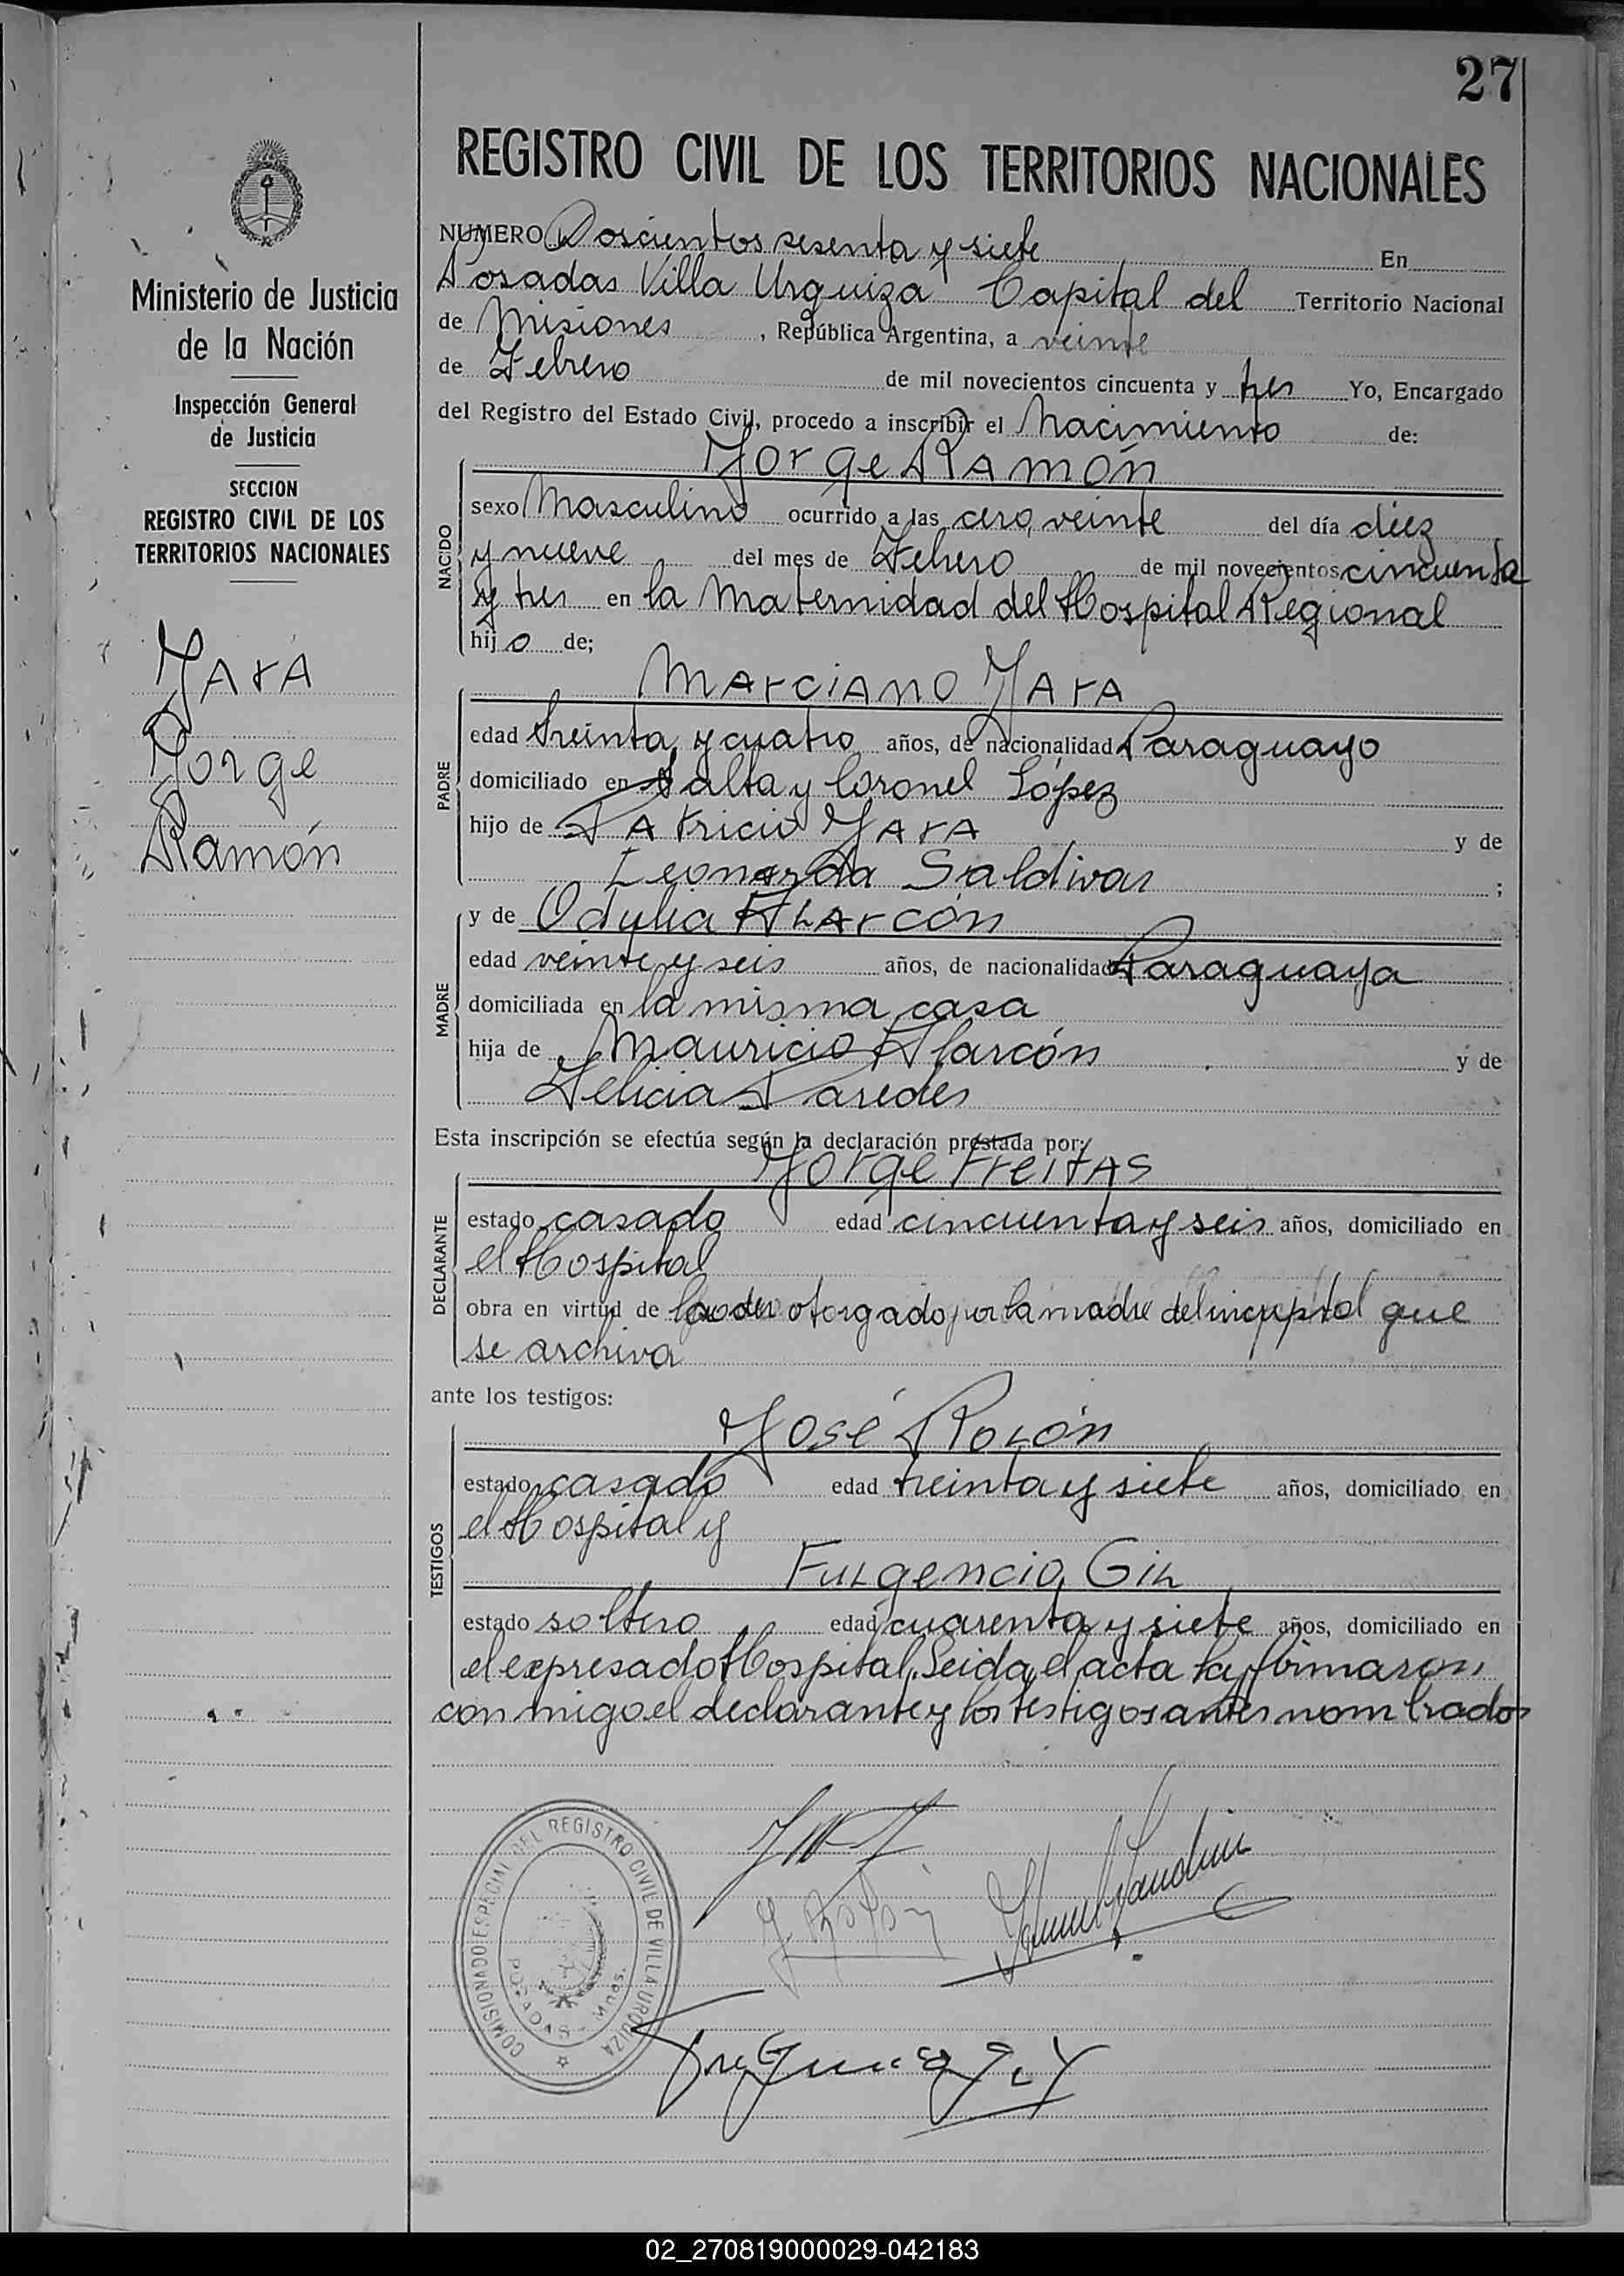 27
REGISTRO CIVIL DE LOS TERRITORIOS NACIONALES
Ministerio de Justicia
de la Nación
Inspección General
de Justicia
SECCION
REGISTRO CIVIL DE LOS
TERRITORIOS NACIONALES
Jara
Jorge
Ramón
NUMERO Doscientos sesenta y siete En
Posadas Villa Urquiza Capital del Territorio Nacional
de Misiones, República Argentina, a veinte
de Febrero de mil novecientos cincuenta y tres Yo, Encargado
del Registro del Estado Civil, procedo a inscribir el Nacimiento de:
Jorge Ramón
NACIDO
sexo Masculino ocurrido a las cero, veinte del día diez
y nueve del mes de Febrero de mil novecientos cincuenta
y tres en la Maternidad del Hospital Regional
hijo de;
Marciano Jara
PADRE
edad treinta y cuatro años, de nacionalidad Paraguayo
domiciliado en Salta y Coronel López
hijo de Patricio Jara y de
Leonarda Saldivar ;
MADRE
y de Odulia Alarcón
edad veinte y seis años, de nacionalidad Paraguaya
domiciliada en la misma casa
hija de Mauricio Alarcón y de
Felicia Paredes
Esta inscripción se efectúa según la declaración prestada por:
Jorge Freitas
DECLARANTE
estado casado edad cincuenta y seis años, domiciliado en
el Hospital
obra en virtud de poder otorgado por la madre del que
se archiva
ante los testigos:
José Rolón
TESTIGOS
estado casado edad treinta y siete años, domiciliado en
el Hospital y
Fulgencio Gil
estado soltero edad cuarenta y siete años, domiciliado en
el expresado Hospital. Leida el acta la firmaron
conmigo el declarante y los testigos antes nombrados
COMISIONADO ESPECIAL DEL REGISTRO CIVIL DE VILLA URQUIZA
POSADAS - Mnes.
J. Rolón
02_270819000029-042183